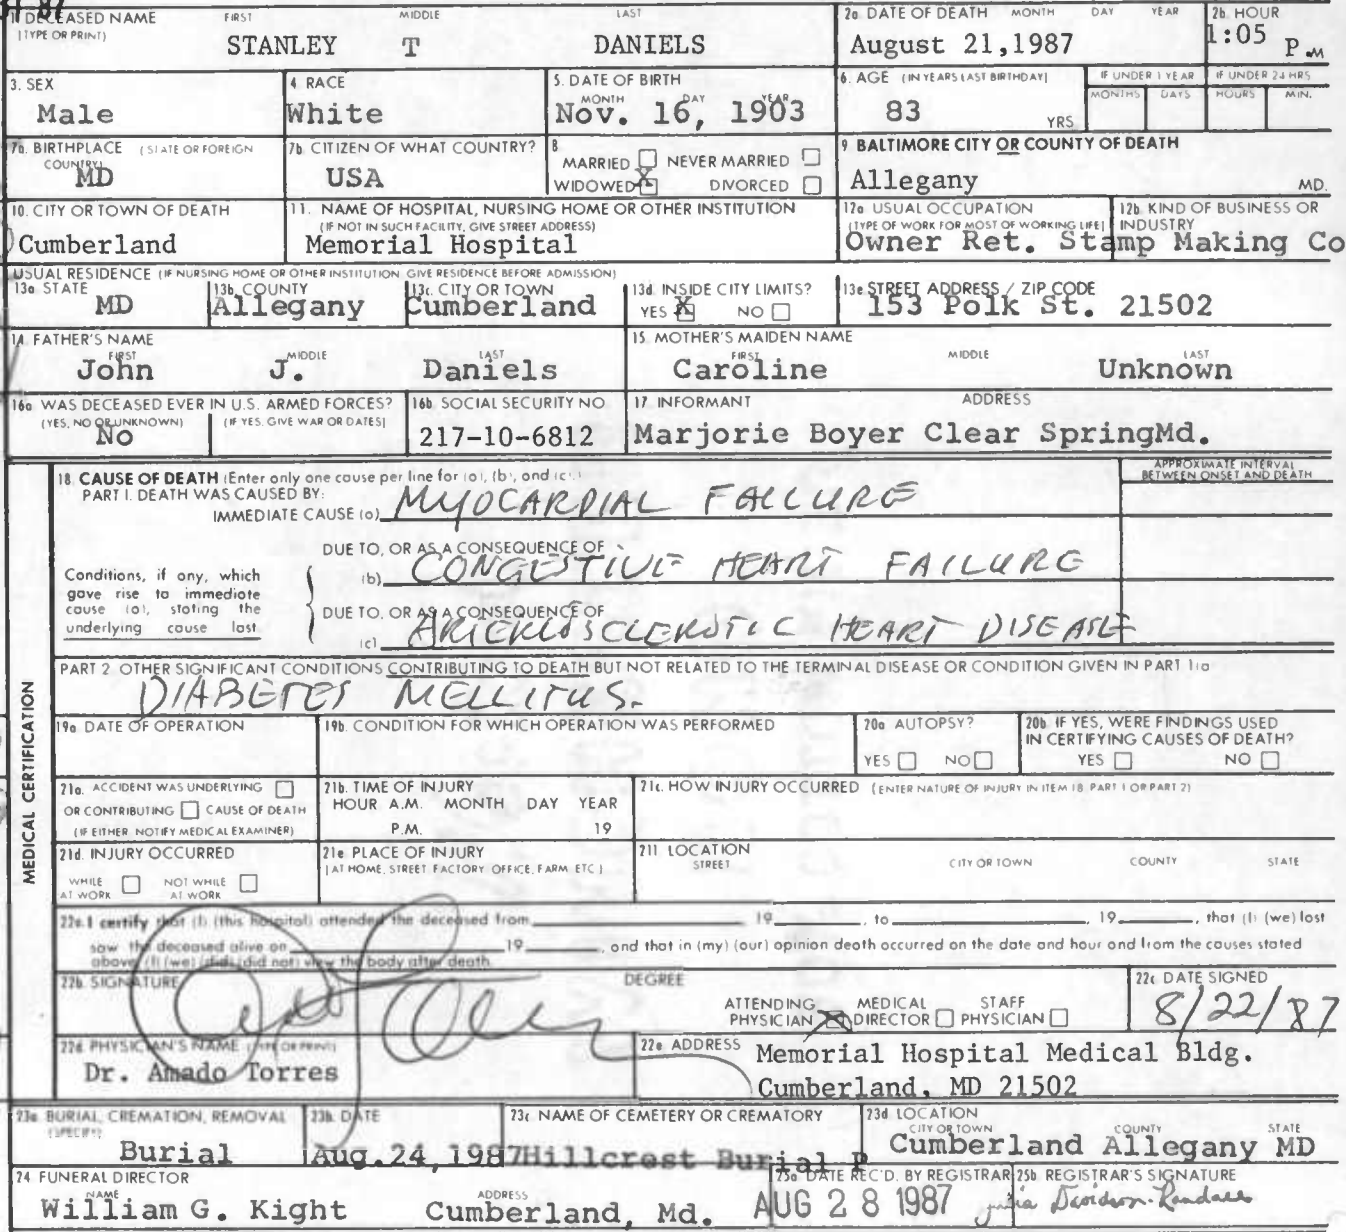 1 DECEASED NAME FIRST MIDDLE LAST
(TYPE OR PRINT)
STANLEY T DANIELS
2a DATE OF DEATH MONTH DAY YEAR
August 21,1987
2b. HOUR
1:05 P.M
3. SEX
Male
4 RACE
White
5. DATE OF BIRTH
MONTH DAY YEAR
Nov. 16, 1903
6. AGE (IN YEARS LAST BIRTHDAY)
83 YRS
IF UNDER 1 YEAR
MONTHS DAYS
IF UNDER 24 HRS
HOURS MIN.
7a. BIRTHPLACE (STATE OR FOREIGN
COUNTRY)
MD
7b. CITIZEN OF WHAT COUNTRY?
USA
8
MARRIED NEVER MARRIED
WIDOWED X DIVORCED
9 BALTIMORE CITY OR COUNTY OF DEATH
Allegany MD.
10. CITY OR TOWN OF DEATH
Cumberland
11. NAME OF HOSPITAL, NURSING HOME OR OTHER INSTITUTION
(IF NOT IN SUCH FACILITY, GIVE STREET ADDRESS)
Memorial Hospital
12a USUAL OCCUPATION
(TYPE OF WORK FOR MOST OF WORKING LIFE)
12b. KIND OF BUSINESS OR
INDUSTRY
Owner Ret. Stamp Making Co
USUAL RESIDENCE (IF NURSING HOME OR OTHER INSTITUTION GIVE RESIDENCE BEFORE ADMISSION)
13a STATE
MD
13b. COUNTY
Allegany
13c. CITY OR TOWN
Cumberland
13d INSIDE CITY LIMITS?
YES X NO
13e STREET ADDRESS / ZIP CODE
153 Polk St. 21502
14 FATHER'S NAME
FIRST MIDDLE LAST
John J. Daniels
15. MOTHER'S MAIDEN NAME
FIRST MIDDLE LAST
Caroline Unknown
16a WAS DECEASED EVER IN U.S. ARMED FORCES?
(YES, NO OR UNKNOWN) (IF YES, GIVE WAR OR DATES)
No
16b SOCIAL SECURITY NO.
217-10-6812
17 INFORMANT ADDRESS
Marjorie Boyer Clear SpringMd.
MEDICAL CERTIFICATION
18. CAUSE OF DEATH (Enter only one cause per line for (a), (b), and (c).)
APPROXIMATE INTERVAL
BETWEEN ONSET AND DEATH
PART I. DEATH WAS CAUSED BY:
IMMEDIATE CAUSE (a) MYOCARDIAL FAILURE
DUE TO, OR AS A CONSEQUENCE OF
(b) CONGESTIVE HEART FAILURE
Conditions, if any, which
gave rise to immediate
cause (a), stating the
underlying cause last
DUE TO, OR AS A CONSEQUENCE OF
(c) ARTERIOSCLEROTIC HEART DISEASE
PART 2 OTHER SIGNIFICANT CONDITIONS CONTRIBUTING TO DEATH BUT NOT RELATED TO THE TERMINAL DISEASE OR CONDITION GIVEN IN PART 1(a)
DIABETES MELLITUS.
19a DATE OF OPERATION
19b. CONDITION FOR WHICH OPERATION WAS PERFORMED
20a AUTOPSY?
YES NO
20b. IF YES, WERE FINDINGS USED
IN CERTIFYING CAUSES OF DEATH?
YES NO
21a. ACCIDENT WAS UNDERLYING
OR CONTRIBUTING CAUSE OF DEATH
(IF EITHER NOTIFY MEDICAL EXAMINER)
21b. TIME OF INJURY
HOUR A.M. MONTH DAY YEAR
P.M. 19
21c. HOW INJURY OCCURRED (ENTER NATURE OF INJURY IN ITEM 18, PART 1 OR PART 2)
21d. INJURY OCCURRED
WHILE AT WORK NOT WHILE AT WORK
21e PLACE OF INJURY
(AT HOME, STREET, FACTORY, OFFICE, FARM, ETC.)
21f. LOCATION
STREET CITY OR TOWN COUNTY STATE
22a. I certify that (I) (this hospital) attended the deceased from 19 , to , 19 , that (I) (we) last
saw the deceased alive on 19 , and that in (my) (our) opinion death occurred on the date and hour and from the causes stated
above, (I) (we) (did) (did not) view the body after death.
22b. SIGNATURE DEGREE
ATTENDING PHYSICIAN X MEDICAL DIRECTOR STAFF PHYSICIAN
22c DATE SIGNED
8/22/87
22d. PHYSICIAN'S NAME (TYPE OR PRINT)
Dr. Amado Torres
22e ADDRESS
Memorial Hospital Medical Bldg.
Cumberland, MD 21502
23a BURIAL, CREMATION, REMOVAL
(SPECIFY)
Burial
23b. DATE
Aug.24,1987
23c. NAME OF CEMETERY OR CREMATORY
Hillcrest Burial P
23d LOCATION
CITY OR TOWN COUNTY STATE
Cumberland Allegany MD
24 FUNERAL DIRECTOR
NAME ADDRESS
William G. Kight Cumberland, Md.
25a DATE REC'D. BY REGISTRAR
AUG 28 1987
25b REGISTRAR'S SIGNATURE
Julia Davidson-Randall